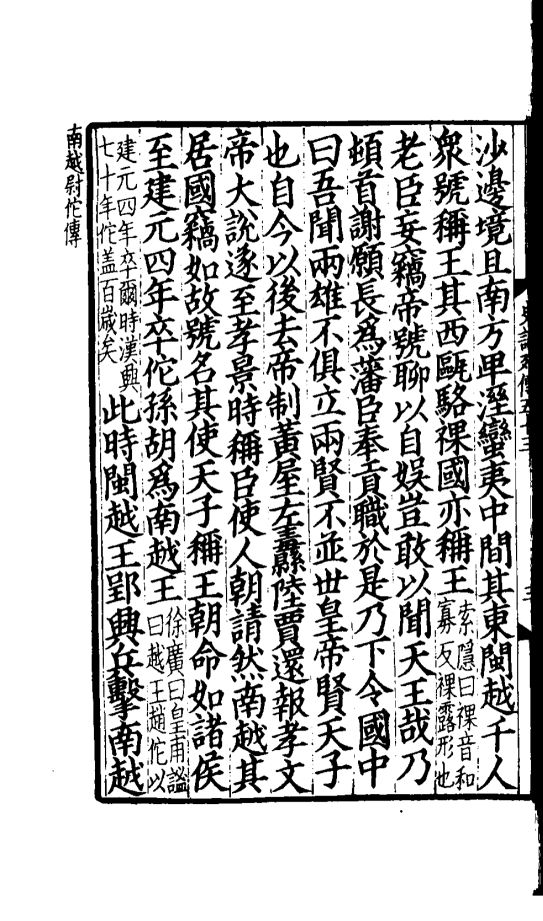 沙邊境且南方卑溼蠻夷中間其東閩越千人
衆號稱王其西甌駱祼國亦稱王
索隱曰祼音和
寡反祼露形也
老臣妄竊帝號聊以自娛豈敢以聞天王哉乃
頓首謝願長爲藩臣奉貢職於是乃下令國中
曰吾聞兩雄不俱立兩賢不並世皇帝賢天子
也自今以後去帝制黃屋左纛陸賈還報孝文
帝大說遂至孝景時稱臣使人朝請然南越其
居國竊如故號名其使天子稱王朝命如諸侯
至建元四年卒佗孫胡爲南越王
徐廣曰皇甫謐
曰越王趙佗以
建元四年卒爾時漢興
七十年佗盖百歲矣
此時閩越王郢興兵擊南越
南越尉佗傳